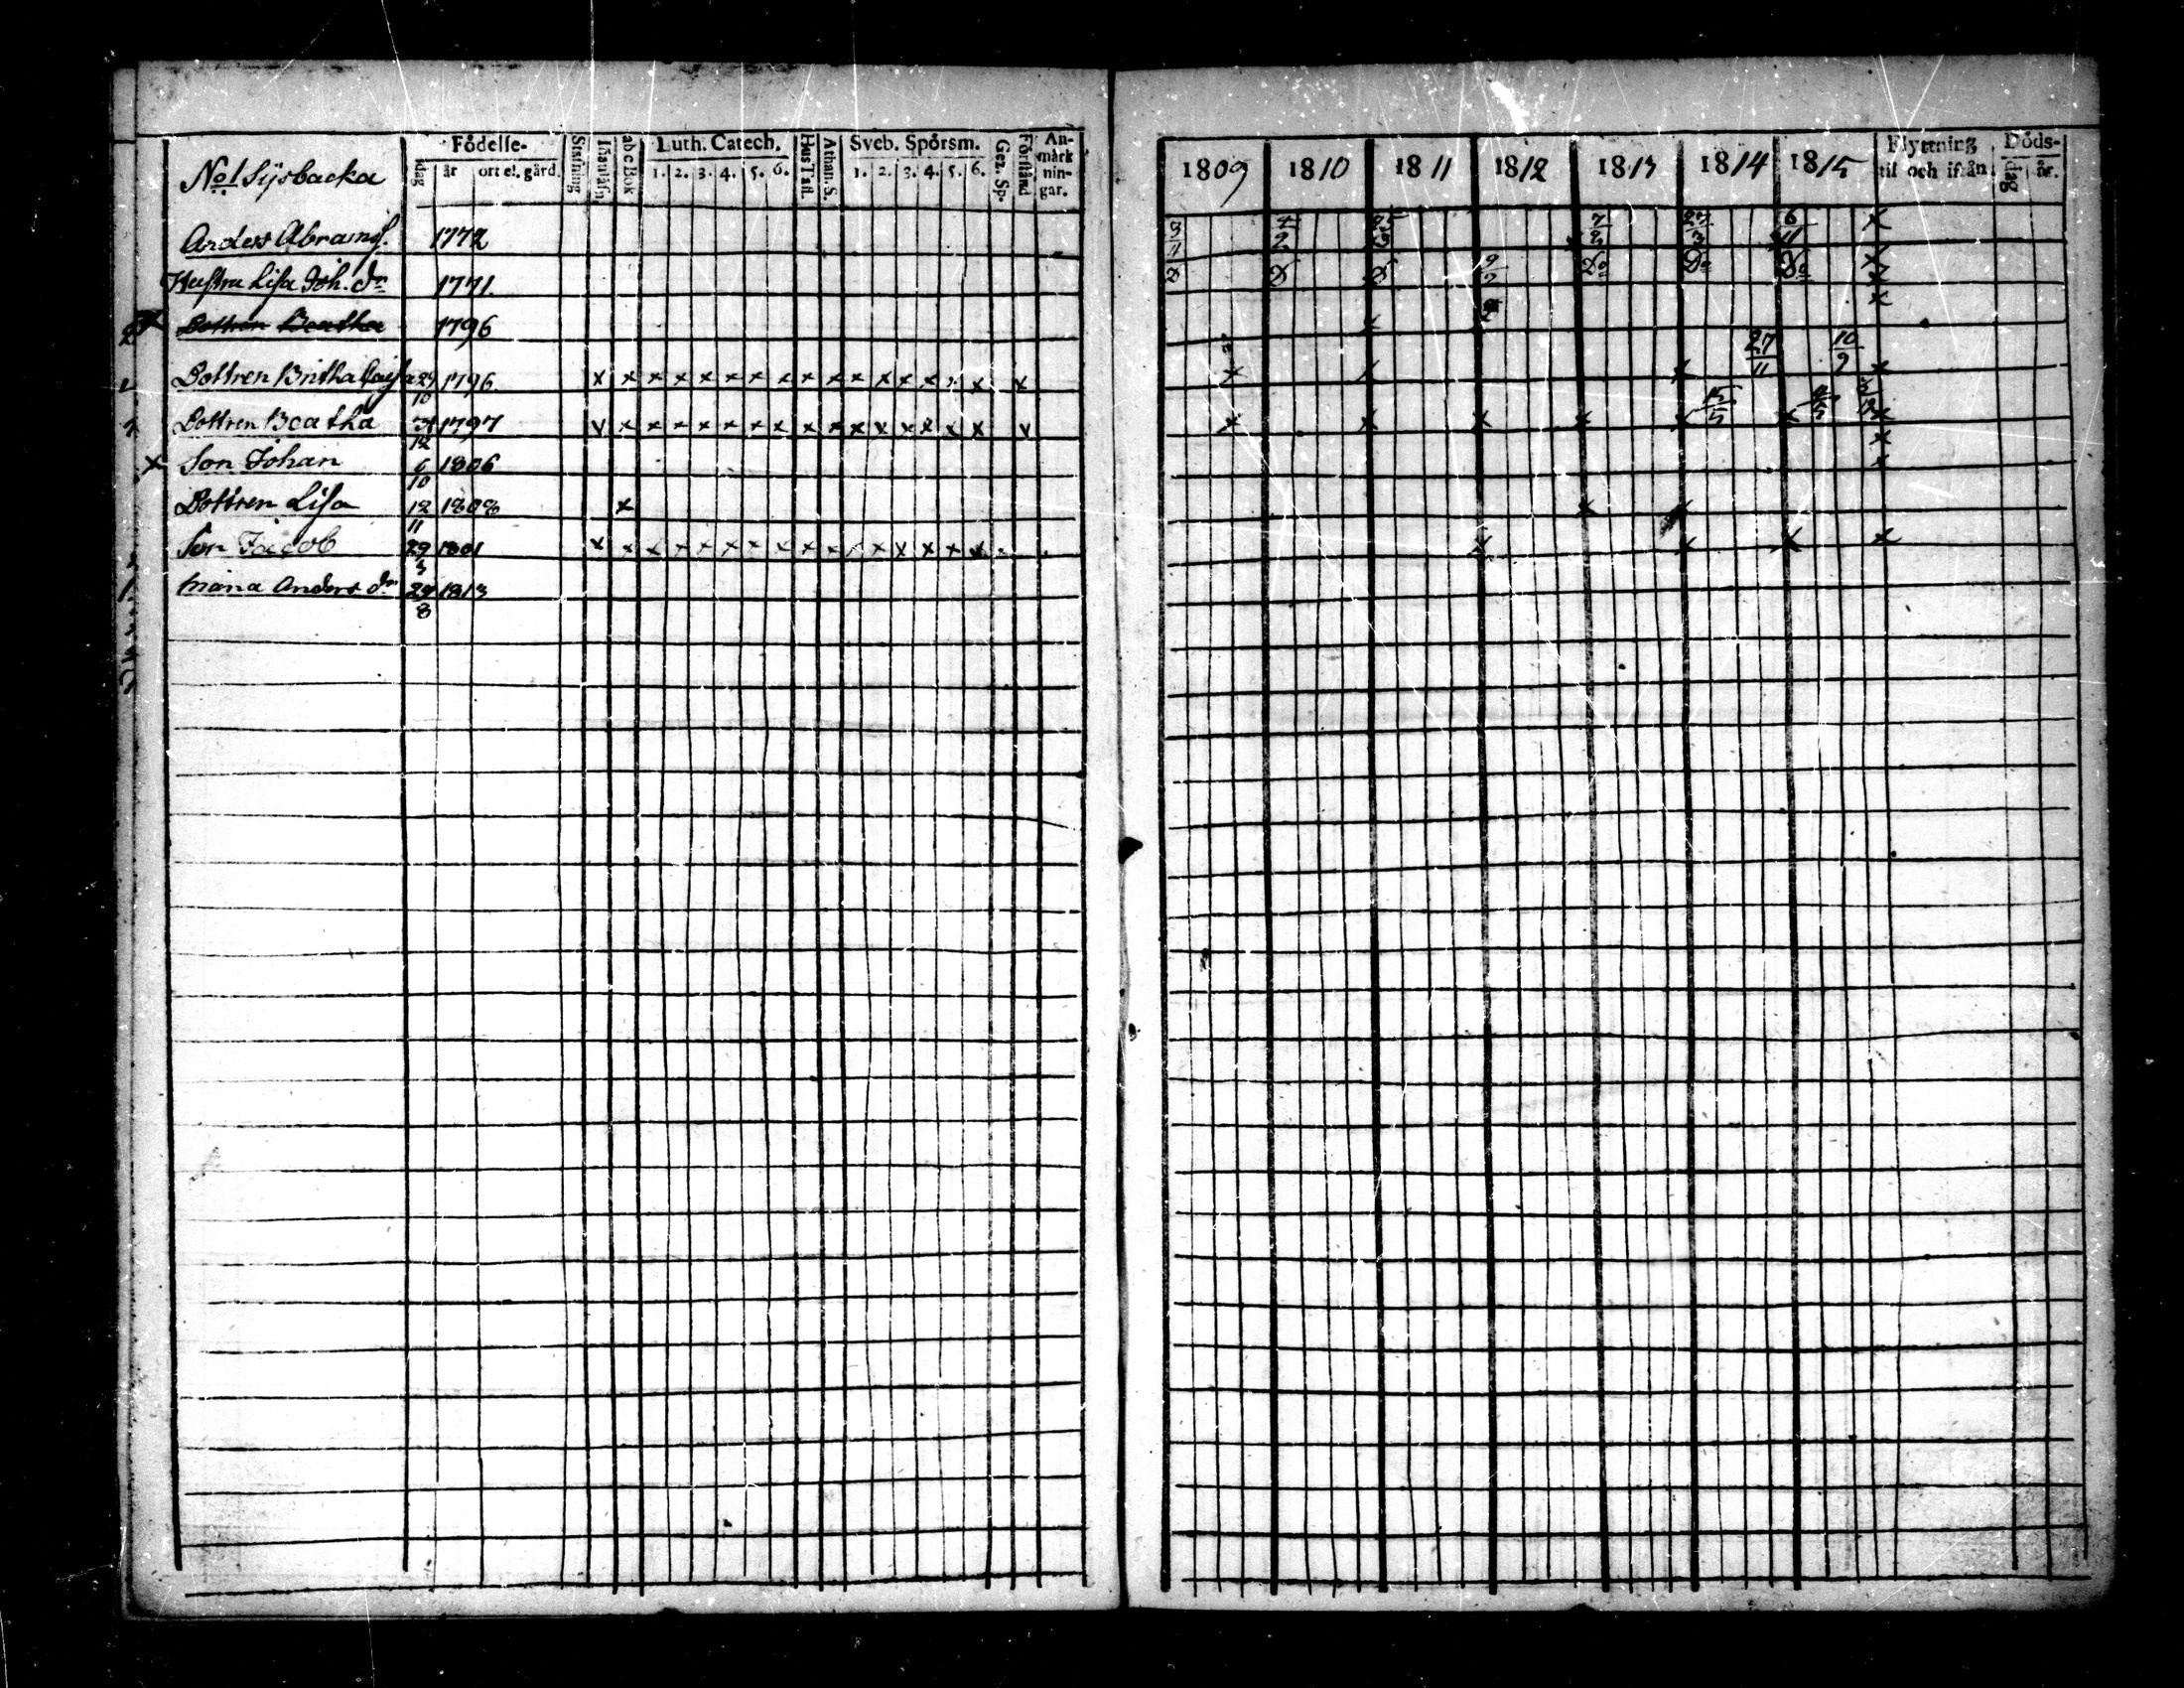 No 1 Sysbacka
Födelse-
dag år ort el. gård.
Stafning
Innanläsn.
abc Bok
Luth. Catech.
1. 2. 3. 4. 5. 6.
Hus Tafl.
Athan. S.
Sveb. Spörsm.
1. 2. 3. 4. 5. 6.
Gez. Sp.
Förstånd
An-
märk
nin-
gar.
Anders Abramss. 1772
Hustru Lisa Joh. dr 1771.
Dottren Beatha 1796
Dottren Britha Caisa 29/10 1796 x x x x x x x x x x x x x x x x x
Dottren Beatha 1797 x x x x x x x x x x x x x x x x x
x Son Johan 6/10 1806
Dottren Lisa 12/11 1808 x
Son Jacob 29/3 1801 x x x x x x x x x x x x x x x x
Maria Anders dr 29/8 1813
1809 1810 1811 1812 1813 1814 1815
Flyttning
til och ifrån
Döds-
dag år.
4/2 25/3 7/2 27/3 6/11 x
D D D 9/2 Do Do Do x
x x
x x x 27/11 10/9 x
x x x x x 15/5 x 4/5 x
x x
x x x x